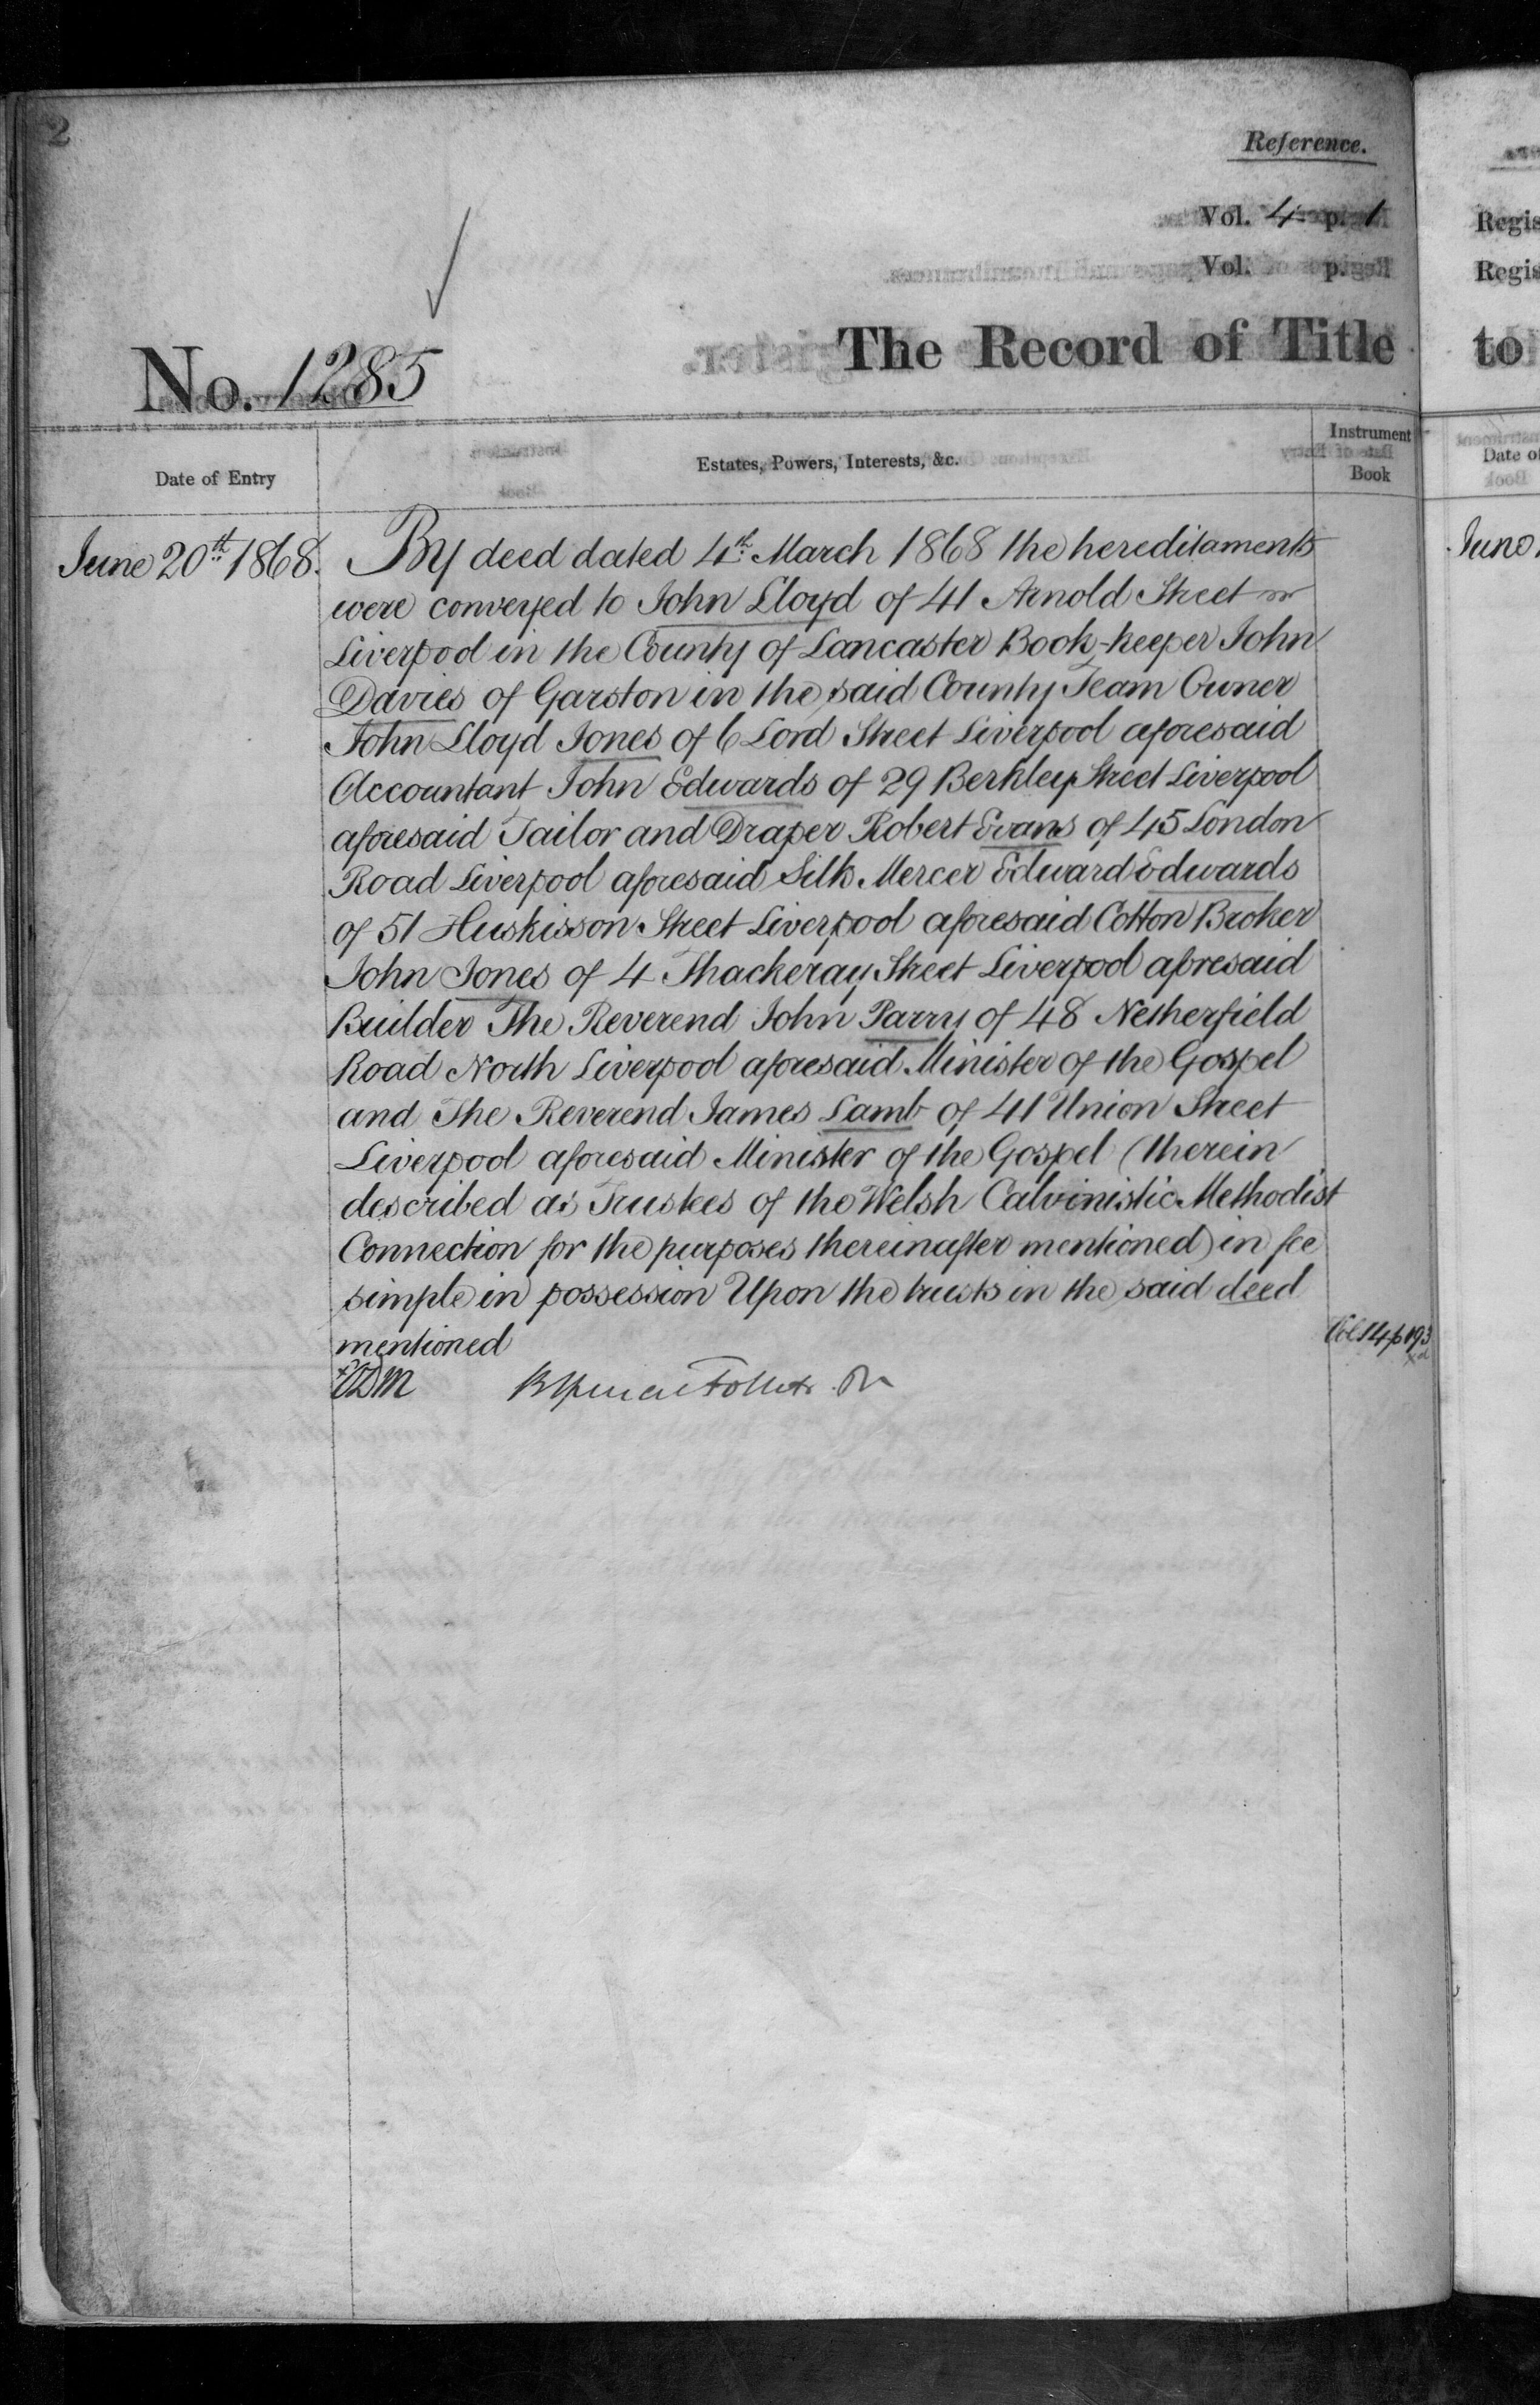 2
Reference.
Vol. 4 p. 1
Vol. p.
The Record of Title
No. 1285
Date of Entry
Estates, Powers, Interests, &c.
Instrument
Book
June 20th 1868.
By deed dated 4th March 1868 the hereditaments
were conveyed to John Lloyd of 41 Arnold Street
Liverpool in the County of Lancaster Book-keeper John
Davies of Garston in the said County Team Owner
John Lloyd Jones of 6 Lord Street Liverpool aforesaid
Accountant John Edwards of 29 Berkley Street Liverpool
aforesaid Tailor and Draper Robert Evans of 45 London
Road Liverpool aforesaid Silk Mercer Edward Edwards
of 51 Huskisson Street Liverpool aforesaid Cotton Broker
John Jones of 4 Thackeray Street Liverpool aforesaid
Builder The Reverend John Parry of 48 Netherfield
Road North Liverpool aforesaid Minister of the Gospel
and The Reverend James Lamb of 41 Union Street
Liverpool aforesaid Minister of the Gospel (therein
described as Trustees of the Welsh Calvinistic Methodist
Connection for the purposes thereinafter mentioned) in fee
simple in possession Upon the trusts in the said deed
mentioned
Vol 14 p 193
Regis
Regis
to
Date of
June